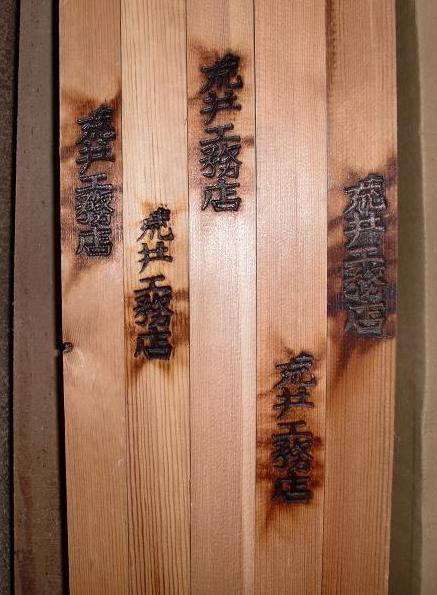 荒井工務店
荒井工務店
荒井工務店
荒井工務店
荒井工務店